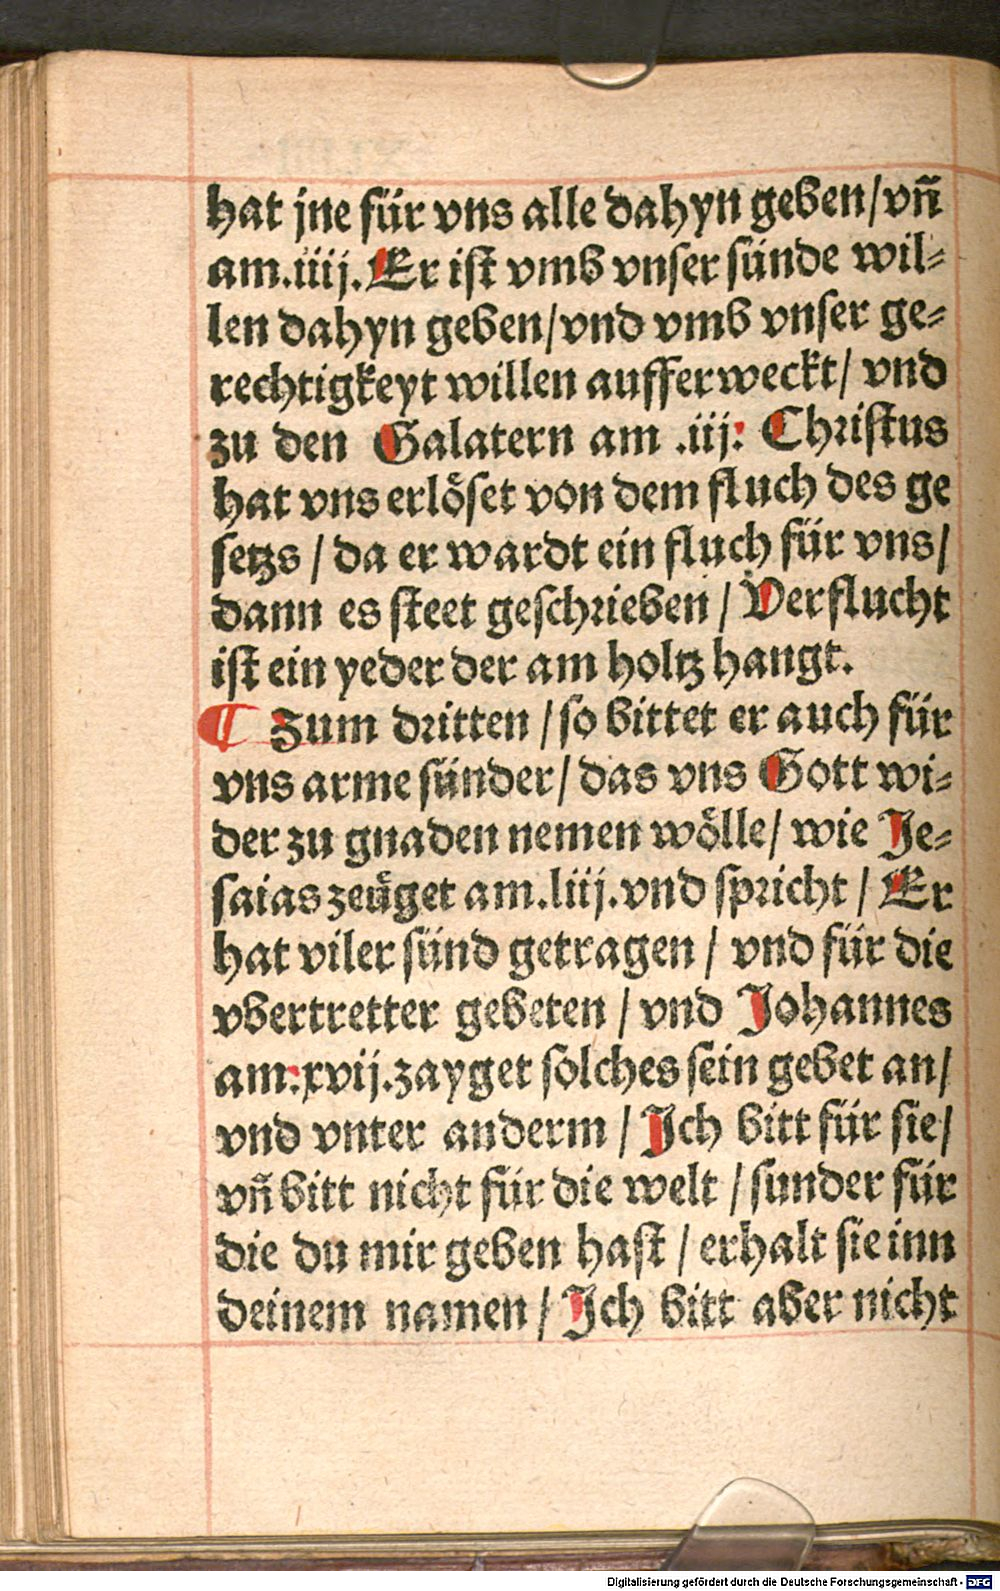 hat jne für vns alle dahyn geben / vñ
am.iiij. Er ist vmb vnser sünde wil⸗
len dahyn geben / vnd vmb vnser ge⸗
rechtigkeyt willen aufferweckt / vnd
zu den Galatern am .iij: Christus
hat vns erlöset von dem fluch des ge
setzs / da er wardt ein fluch für vns /
dann es steet geschrieben / Verflucht
ist ein yeder der am holtz hangt.
¶ Zum dritten / so bittet er auch für
vns arme sünder / das vns Gott wi⸗
der zu gnaden nemen wölle / wie Je⸗
saias zeüget am.liij.vnd spricht / Er
hat viler sünd getragen / vnd für die
vbertretter gebeten / vnd Johannes
am:xvij.zayget solches sein gebet an /
vnd vnter anderm / Ich bitt für sie /
vñ bitt nicht für die welt / sunder für
die du mir geben hast / erhalt sie inn
deinem namen / Ich bitt aber nicht
Digitalisierung gefördert durch die Deutsche Forschungsgemeinschaft - DFG